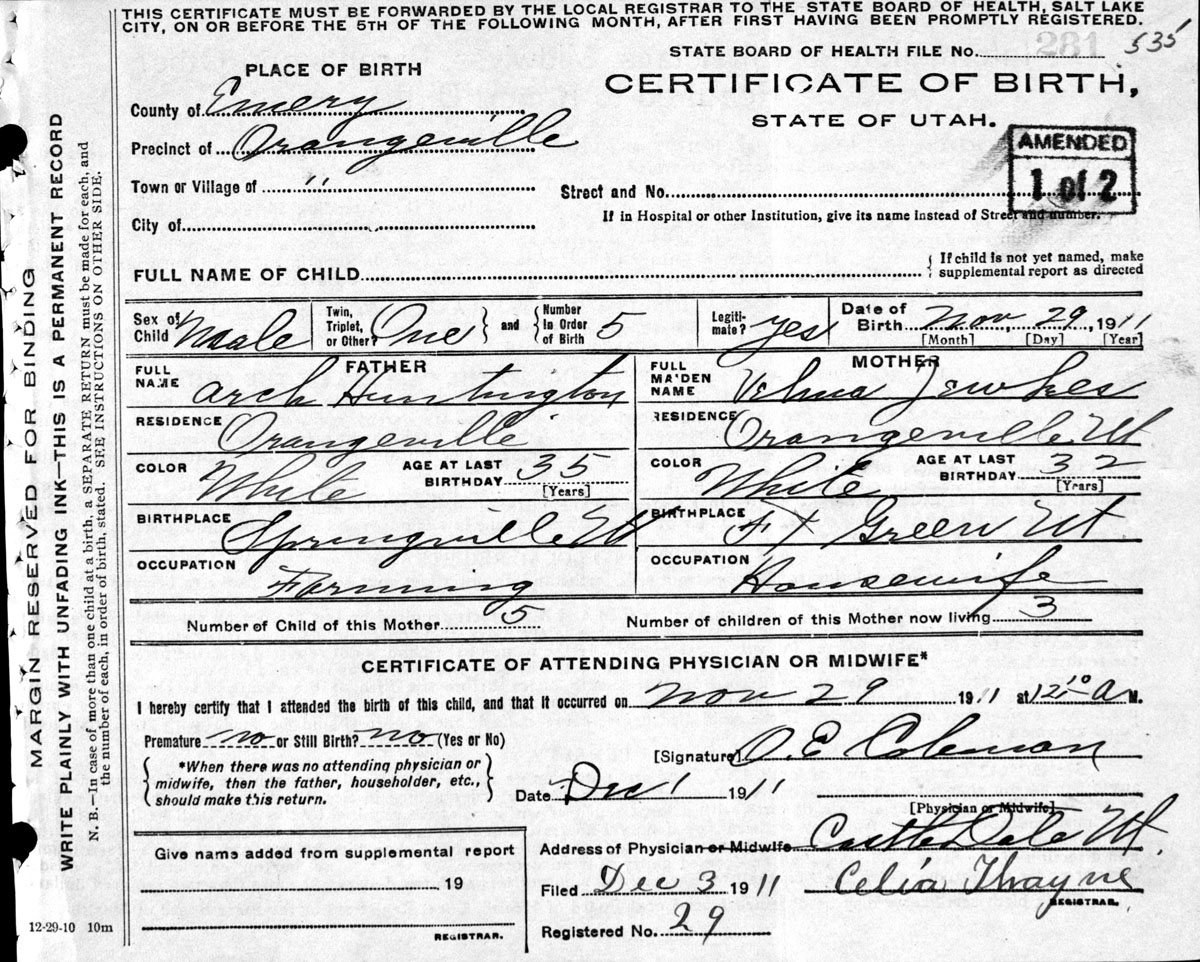 THIS CERTIFICATE MUST BE FORWARDED BY THE LOCAL REGISTRAR TO THE STATE BOARD OF HEALTH, SALT LAKE
CITY, ON OR BEFORE THE 5TH OF THE FOLLOWING MONTH, AFTER FIRST HAVING BEEN PROMPTLY REGISTERED.
STATE BOARD OF HEALTH FILE No. 281 535
PLACE OF BIRTH
CERTIFICATE OF BIRTH,
STATE OF UTAH.
County of Emery
Precinct of Orangeville
Town or Village of "
City of
AMENDED
1 of 2
Street and No.
If in Hospital or other Institution, give its name Instead of Street and number.
FULL NAME OF CHILD
If child is not yet named, make
supplemental report as directed
Sex of Child Male
Twin, Triplet, or Other? One
and Number in Order of Birth 5
Legitimate? yes
Date of Birth Nov 29, 1911
[Month] [Day] [Year]
FATHER
FULL NAME Arch Huntington
RESIDENCE Orangeville
COLOR White
AGE AT LAST BIRTHDAY 35
[Years]
BIRTHPLACE Springville Ut
OCCUPATION Farming
MOTHER
FULL MAIDEN NAME Velma Jewkes
RESIDENCE Orangeville Ut
COLOR White
AGE AT LAST BIRTHDAY 32
[Years]
BIRTHPLACE Ft Green Ut
OCCUPATION Housewife
Number of Child of this Mother 5
Number of children of this Mother now living 3
CERTIFICATE OF ATTENDING PHYSICIAN OR MIDWIFE*
I hereby certify that I attended the birth of this child, and that it occurred on Nov 29 1911 at 12:10 A M.
Premature no or Still Birth? no (Yes or No)
*When there was no attending physician or
midwife, then the father, householder, etc.,
should make this return.
[Signature] O. E. Coleman
Date Dec 1 1911
[Physician or Midwife]
Address of Physician or Midwife Castle Dale Ut.
Filed Dec 3 1911 Celia Thayne
REGISTRAR.
Registered No. 29
Give name added from supplemental report
19
REGISTRAR.
12-29-10 10m
MARGIN RESERVED FOR BINDING
WRITE PLAINLY WITH UNFADING INK—THIS IS A PERMANENT RECORD
N. B.—In case of more than one child at a birth, a SEPARATE RETURN must be made for each, and
the number of each, in order of birth, stated. SEE INSTRUCTIONS ON OTHER SIDE.